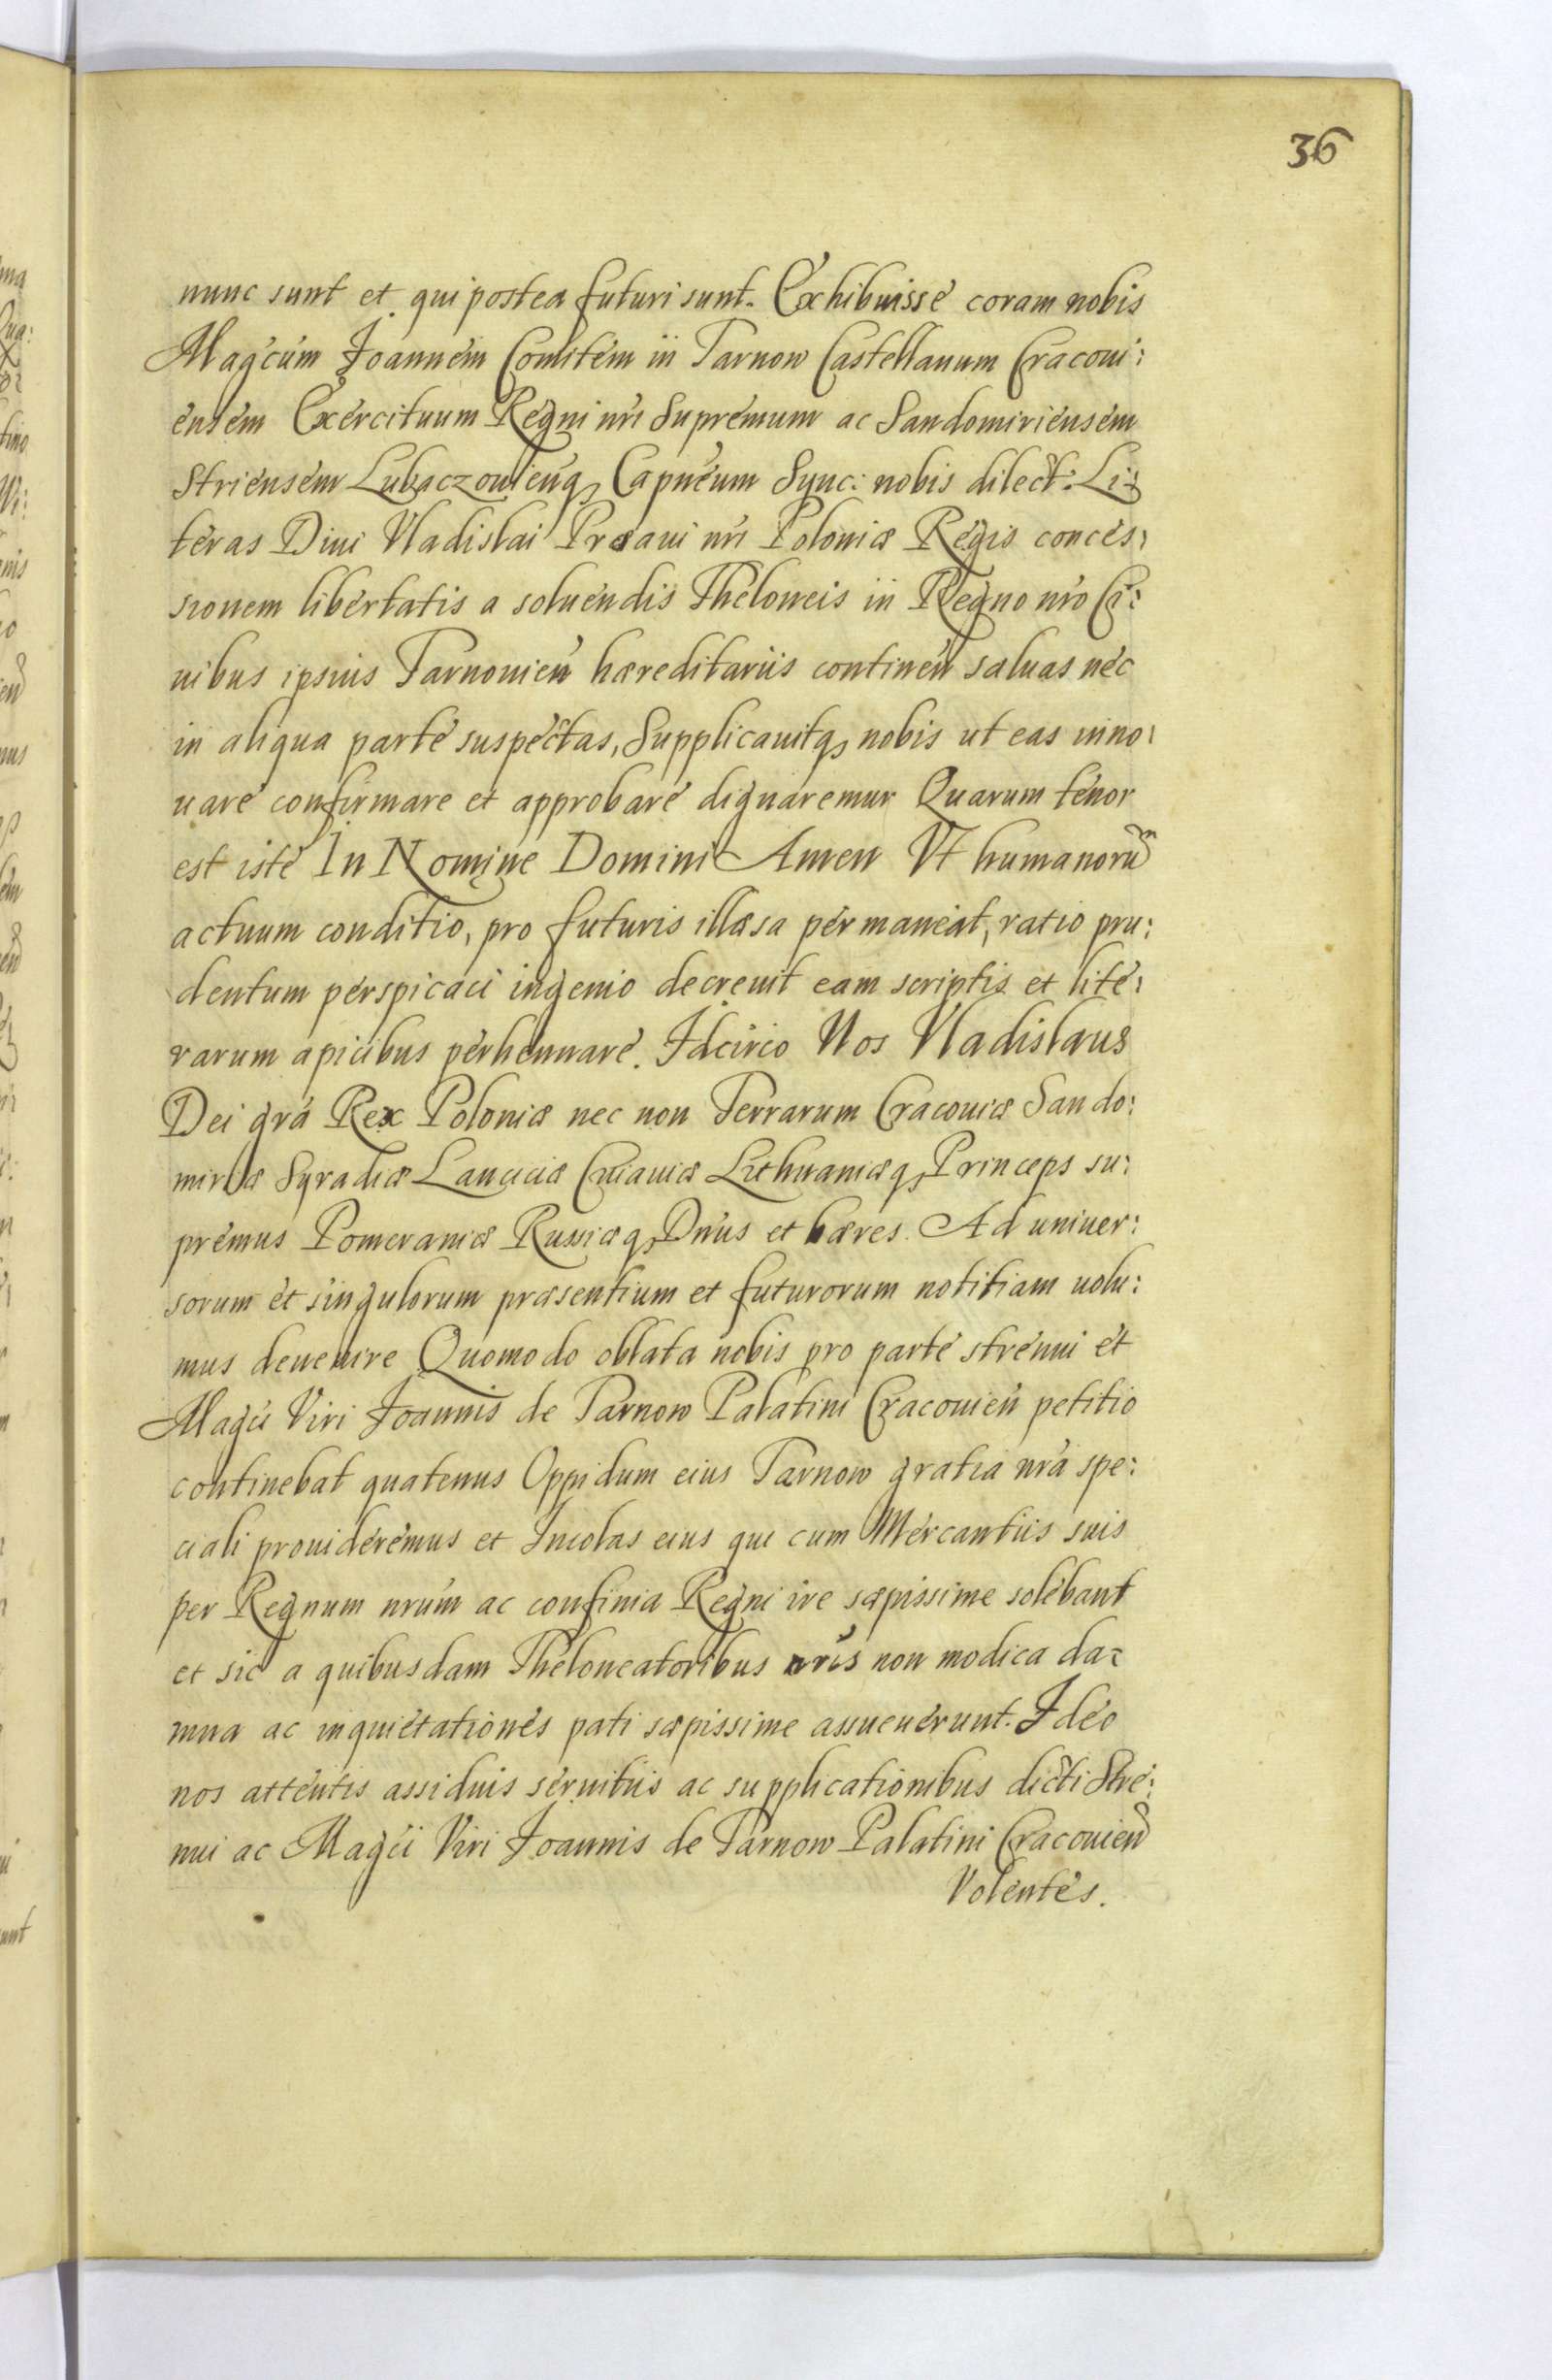 36
nunc sunt et qui postea futuri sunt. Exhibuisse coram nobis
Magcum Joannem Comitem in Tarnow Castellanum Cracoui:
ensem Exercituum Regni nri Supremum ac Sandomiriensem
Striensem Lubaczouienq Capneum Sync: nobis dilect: Li:
teras Diui Vladislai Præaui nri Poloniæ Regis conces:
sionem libertatis a soluendis Theloneis in Regno nro Ci:
uibus ipsius Tarnouien hæreditariis continen saluas nec
in aliqua parte suspectas, Supplicauitq nobis ut eas inno:
uare confirmare et approbare dignaremur Quarum tenor
est iste In Nomine Domini Amen Vt humanorum
actuum conditio, pro futuris illæsa permaneat, ratio pru:
dentum perspicaci ingenio decreuit eam scriptis et lite:
rarum apicibus perhennare. Idcirco Nos Vladislaus
Dei gra Rex Poloniæ nec non Terrarum Cracouiæ Sando:
miriæ Syradiæ Lanciciæ Cuiauiæ Lithuaniæq Princeps su:
premus Pomeraniæ Russiæq Dnus et hæres. Ad uniuer:
sorum et singulorum præsentium et futurorum notitiam uolu:
mus deuenire Quomodo oblata nobis pro parte strenui et
Magci Viri Joannis de Tarnow Palatini Cracouien petitio
continebat quatenus Oppidum eius Tarnow gratia nra spe:
ciali prouideremus et Incolas eius qui cum Mercantiis suis
per Regnum nrum ac confinia Regni ire sæpissime solebant
et sic a quibusdam Theloneatoribus nris non modica da:
mna ac inquietationes pati sæpissime assueuerunt. Ideo
nos attentis assiduis seruitiis ac supplicationibus dicti Stre:
nui ac Magci Viri Joannis de Tarnow Palatini Cracouien
Volentes.